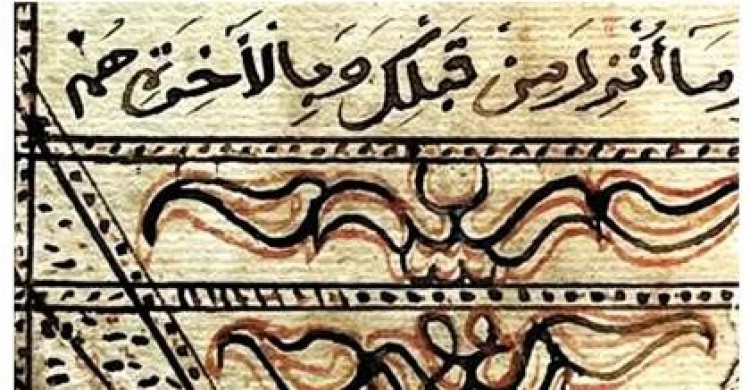 وَمَا أُنْزِلَ مِنْ قَبْلِكَ وَبِالْأَخِرَةِ هُمْ